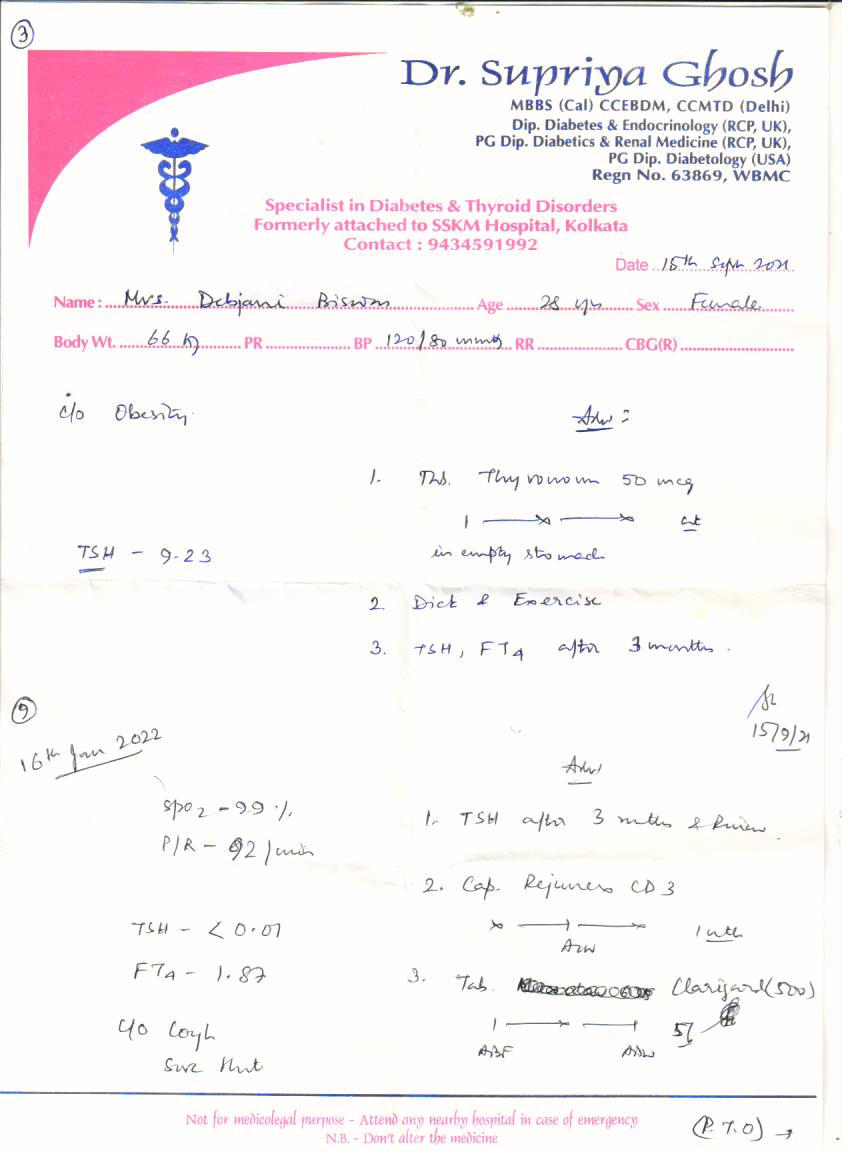 3
Dr. Supriya Ghosh
MBBS (Cal) CCEBDM, CCMTD (Delhi)
Dip. Diabetes & Endocrinology (RCP, UK),
PG Dip. Diabetics & Renal Medicine (RCP, UK),
PG Dip. Diabetology (USA)
Regn No. 63869, WBMC
Specialist in Diabetes & Thyroid Disorders
Formerly attached to SSKM Hospital, Kolkata
Contact : 9434591992
Date 15th Sept 2021
Name : Mrs. Debjani Biswas Age 28 yrs Sex Female
Body Wt. 66 kg PR BP 120/80 mmHg RR CBG(R)
c/o Obesity
Adv :
1. Tab. Thyronorm 50 mcg
1 x x
in empty stomach
TSH - 9.23
2. Diet & Exercise
3. TSH, FT4 after 3 months.
15/9/21
9
16th Jan 2022
Adv
SpO2 - 99 %
1. TSH after 3 mths & Review
P/R - 92/min
2. Cap. CD3
x 1 x 1 mth
TSH - < 0.01
FT4 - 1.87
3. Tab. (500)
c/o Cough
1 x 1
Not for medicolegal purpose - Attend any nearby hospital in case of emergency
N.B. - Don't alter the medicine
(P.T.O) →